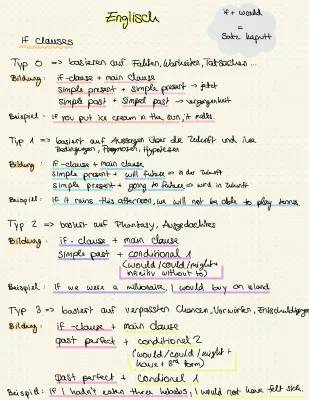 Englisch
if + would
=
Satz kaputt
if clauses
Typ 0 => basieren auf Fakten, Wahrheiten, Tatsachen...
Bildung: if-clause + main clause
simple present + simple present -> jetzt
simple past + simpel past -> vergangenheit
Beispiel: if you put ice cream in the sun, it melts.
Typ 1 => basiert auf Aussagen über die Zukunft und ihre
Bedingungen, Prognosen, Hypothesen
Bildung: if-clause + main clause
simple present + will future => in der Zukunft
simple present + going to future => wird in Zukunft
Beispiel: if it rains this afternoon, we will not be able to play tennis
Typ 2 => basiert auf Phantasy, Ausgedachtes
Bildung: if-clause + main clause
simple past + conditional 1
(would/could/might +
infinitiv without to)
Beispiel: if we were a millionaire, I would buy an island
Typ 3 => basiert auf verpassten Chancen, Vorwürfen, Entschuldigungen
Bildung: if-clause + main clause
past perfect + conditionel 2
(would/could/might +
have + 3rd form)
past perfect + condionel 1
Beispiel: if I hadn't eaten three kebabs, I would not have felt sick.